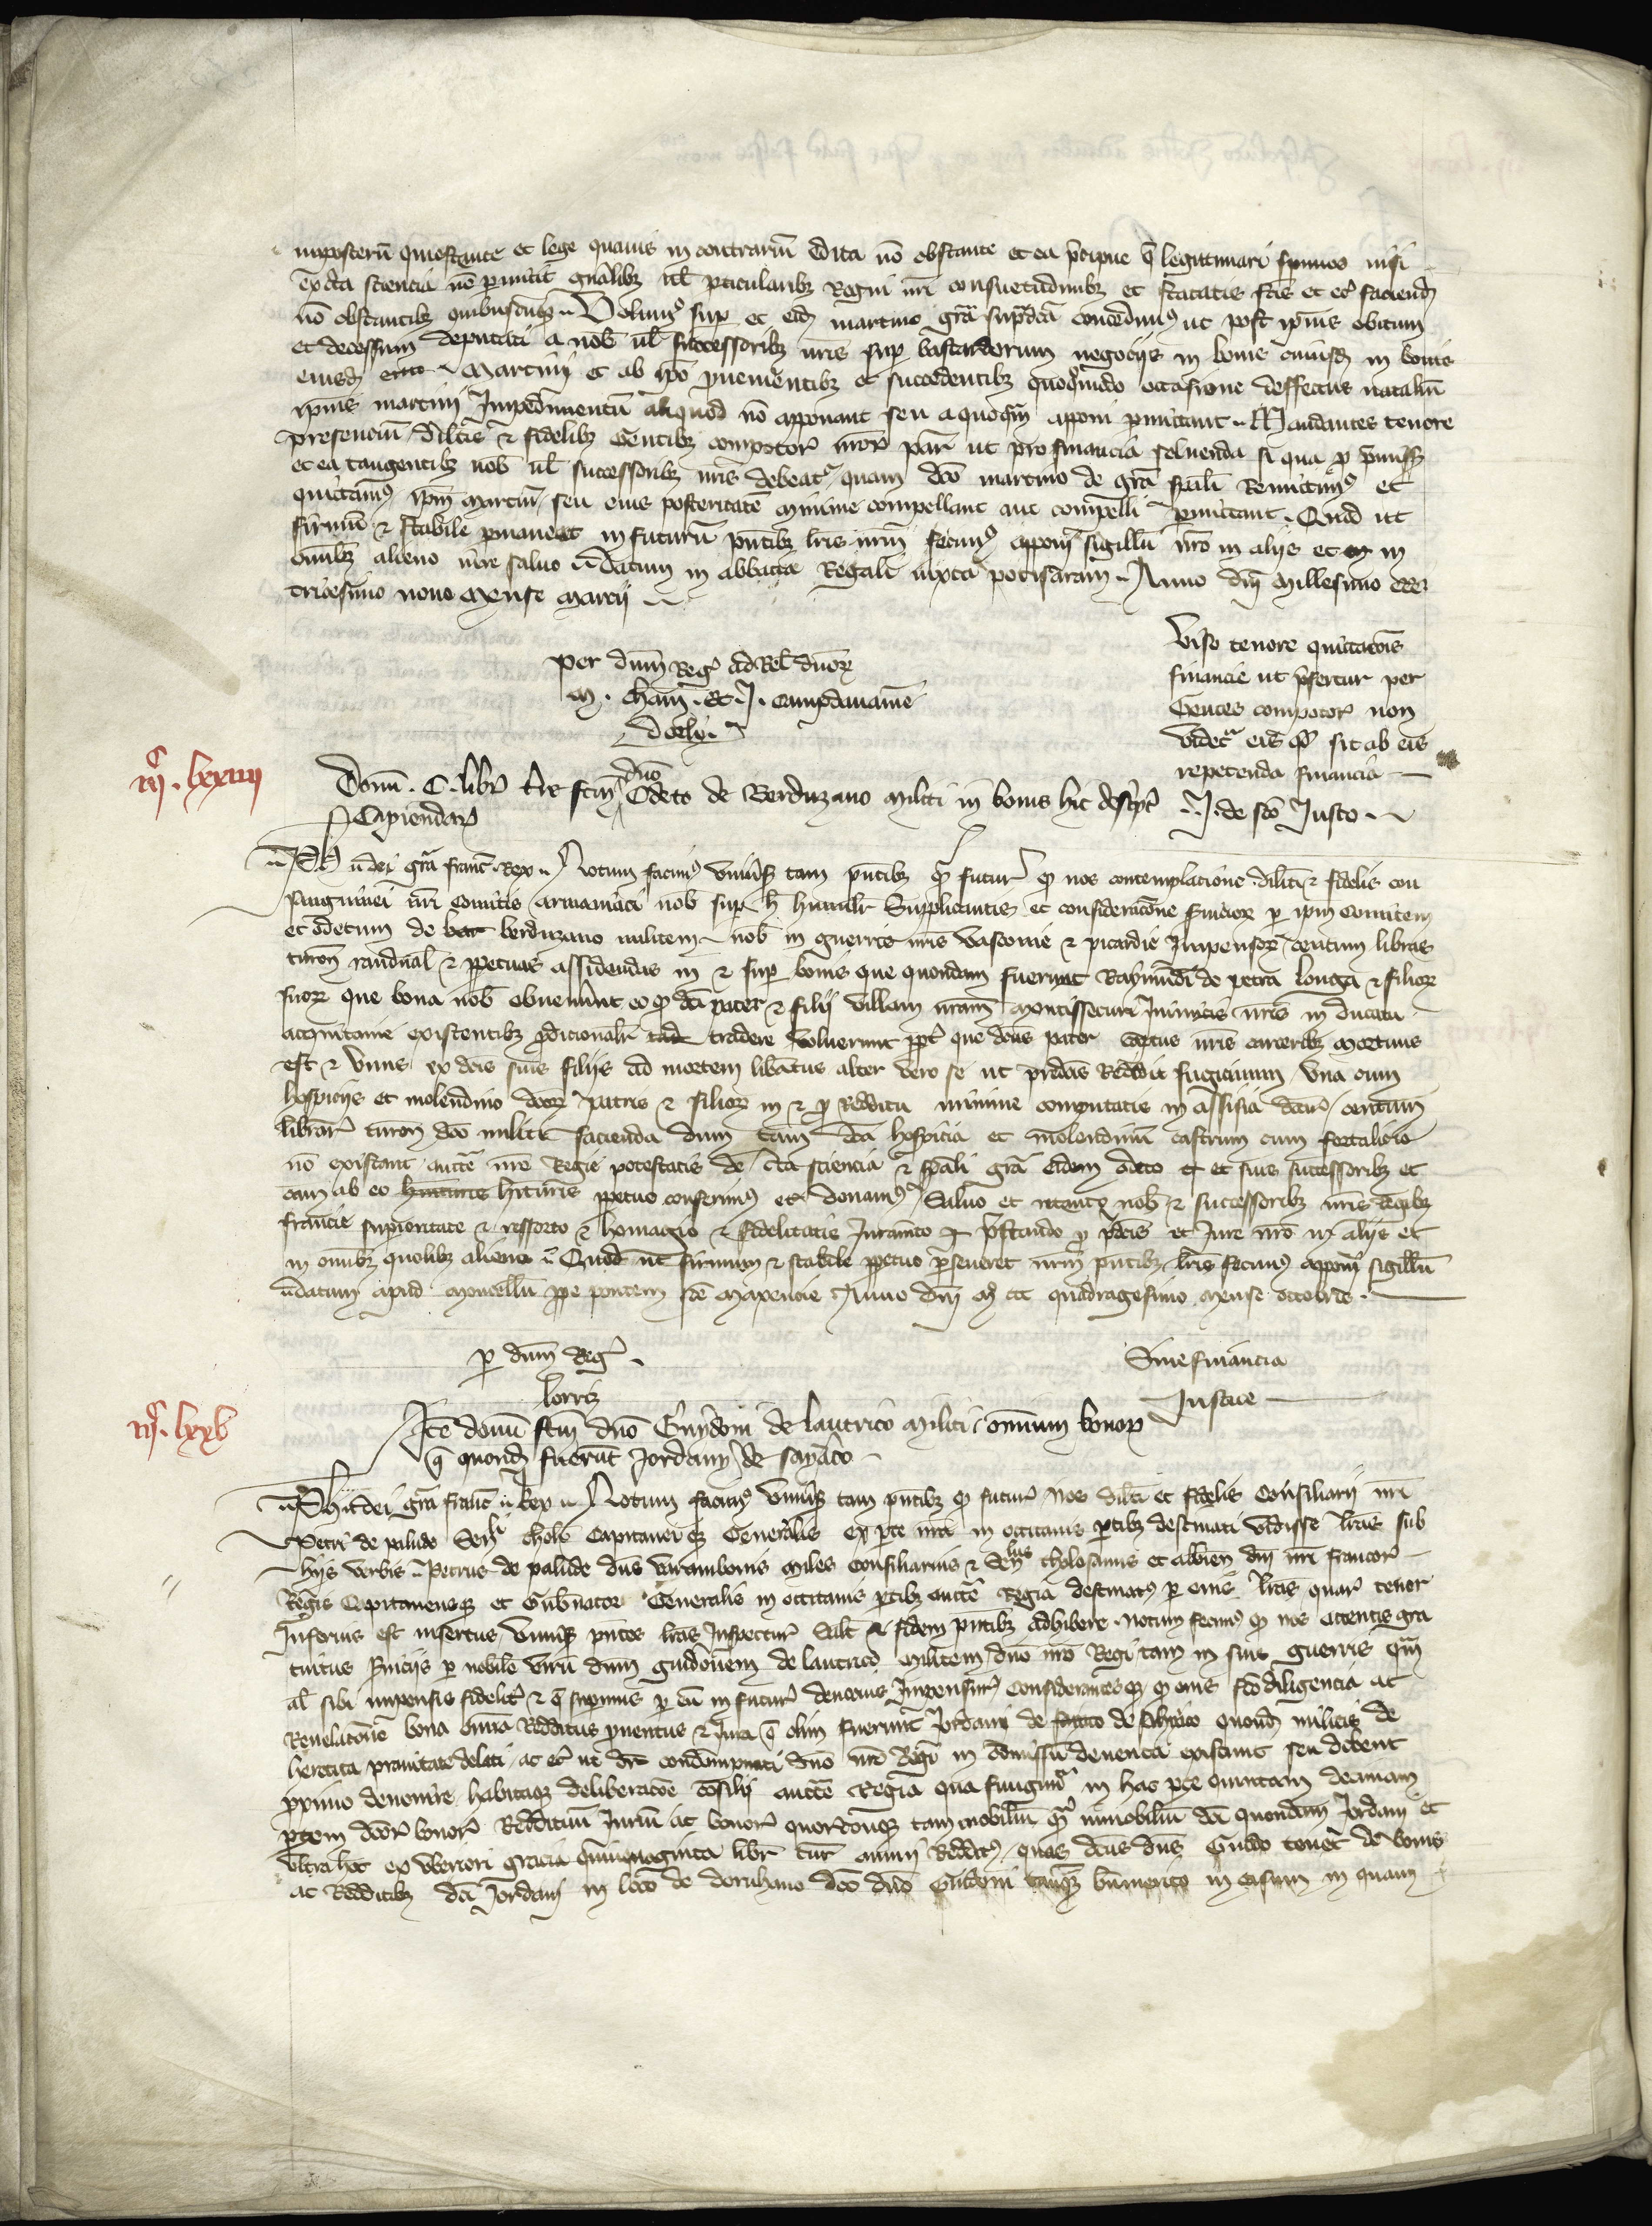 imposterum questione et lege quavis in contrarium edita no obstante et ea precipue q legittimari spurios nisi
ex certa sciencia no permittit gnalibz vel pticularibz Regni nri consuetudinibz et statutis ftis et eciam faciend
no obstantibz quibuscumqz Volumus sup et eid martino gram supradcam concedimus ut post ipius obitum
et decessum deputati a nob vel successoribz nris sup bastardorum negociis in bonis in bonis
eiusd Martini et ab ipo pvenientibz et succedentibz quoquomodo occasione deffectus nataliu
ipius martini Impedimentu aliquod no apponant seu a quoqm apponi pmittant Mandantes tenore
presencium dilcis et fidelibz Gentibz compotor nror par ut pro financia solvenda si qua p pmissis
et ea tangentibz nob vel successoribz nris debeat quam dco martino de gra spali Remittimus et
quittamus ipm martinu seu eius posteritate minime compellant aut compelli pmittant Quod ut
firmu et stabile pmaneat in futuru pntibz lris nrm fecimus apponi sigillu nro in aliis et in
omibz alieno iure salvo Datum in abbatia Regali iuxta potisaram Anno dni Millesimo ccc
tricesimo nono mense marcii
Per dnm Reg ad Rel dnor
M. cham. et J.
Viso tenore quittacois
financie ut pfertur per
Gentes compotor non
videt eis qd sit ab eis
repetenda financia
J. de sco Justo
iiii lxxiiii
Donu C libr t're fcm dno Odeto de Berduzano militi in bonis hic descpt
Capiendar
Phs dei gra franc Rex Notum facimus univsis tam pntibz qm futur qd nos contemplacione dilcti et fidelis con
sanguinei nri Comitis Armaniaci nob sup h humilr supplicantis et consideracone servicior p ipm Comitem
et Odetum de berduzano militem nob in guerris nris Vasconie et picardie Impensor centum libras
turon randual et ppetuas assidendas in et sup bonis que quondam fuerunt Raymundi de petra longa et filior
suor que bona nob obvenerunt eo qd dci pater et filii villam nram Montissecuri Inimicis nris in ducatu
acquitanie existentibz pdicionalr tradere voluerunt ppt que dcus pater captus nris carceribz mortuus
est et unus ex dcis suis filiis ad mortem libatus alter vero se ut pdcus Reddidit fugitivum una cum
hospiciis et molendino dcor patris et filior in et p redditu minime computatis in assisia dcar centum
librar turon dco militi facienda dum tam dca hospicia et molendinu castrum cum fortalicio
no existant aucte nre Regie potestatis de cta sciencia et spali gra eidem odeto et suis successoribz et
cam ab eo hituris ppetuo conferimus et donamus Salvo et retento nob et successoribz nris Regibz
francie superioritate et ressorto et homagio et fidelitatis Juramto pstando p pdcis et Jure nro in aliis et
in omibz quolibz alieno Quod ut firmum et stabile ppetuo pseveret nrm pntibz lris fecimus apponi sigillu
Datum apud Moncellu ppe pontem sce maxencie Anno dni M ccc quadragesimo mense octobris
p dnm Reg
Lorriz
Sine financia
Justice
iiii lxxv
Ite donu fcm dno Guidoni de lautrico militi omnium bonor
q quond fuerut Jordani de sayaco
Phs dei gra franc Rex Notum facimus univsis tam pntibz qm futur Nos dilcti et fidelis Consiliarii nri
Petri de palude Sen thole Capitanei qz Generalis ex pte nra in occitanis ptibz destinati vidisse lras sub
hiis verbis Petrus de palude dns Varambonis miles Consiliarius et Senllus tholosanus et albien dni nri francor
Regis Capitaneusqz et Gubnator Generalis in occitanis ptibz aucte Regia destinatus per eius lras quar tenor
Inferius est insertus univsis pntes lras Inspectur Salt et fidem pntibz adhibere Notum facimus qd nos attentis gra
tuitus serviciis p nobile viru dnm guidonem de lautrico militem dno nro Regi tam in suis guerris qm
al sibi impensis fidelit et q speramus p eu in futur devocius Impensur Considerantes qd qd eius sco diligencia ac
Revelacoe bona omia Redditus pventus et Jura q olim fuerunt Jordani de quond militis de
heretica pravitate delati ac eciam ut condempnati dno nro Regi in Comissu deventa existunt seu debent
pximo devenire habitaqz deliberacoe cosilii aucte Regia qua fungimur in hac pte quintam decimam
ptem dcor bonor Reddituu Juriu ac bonor quorcuqz tam mobiliu qm immobiliu dci quondam Jordani et
ultra hoc ex uberiori gracia quinquaginta libr tur annui Reddit quas dcus dns Guido tenet de bonis
ac Redditibz dci Jordani in loco de dco dno Guidoni tanqz bnmerito in casum in quam